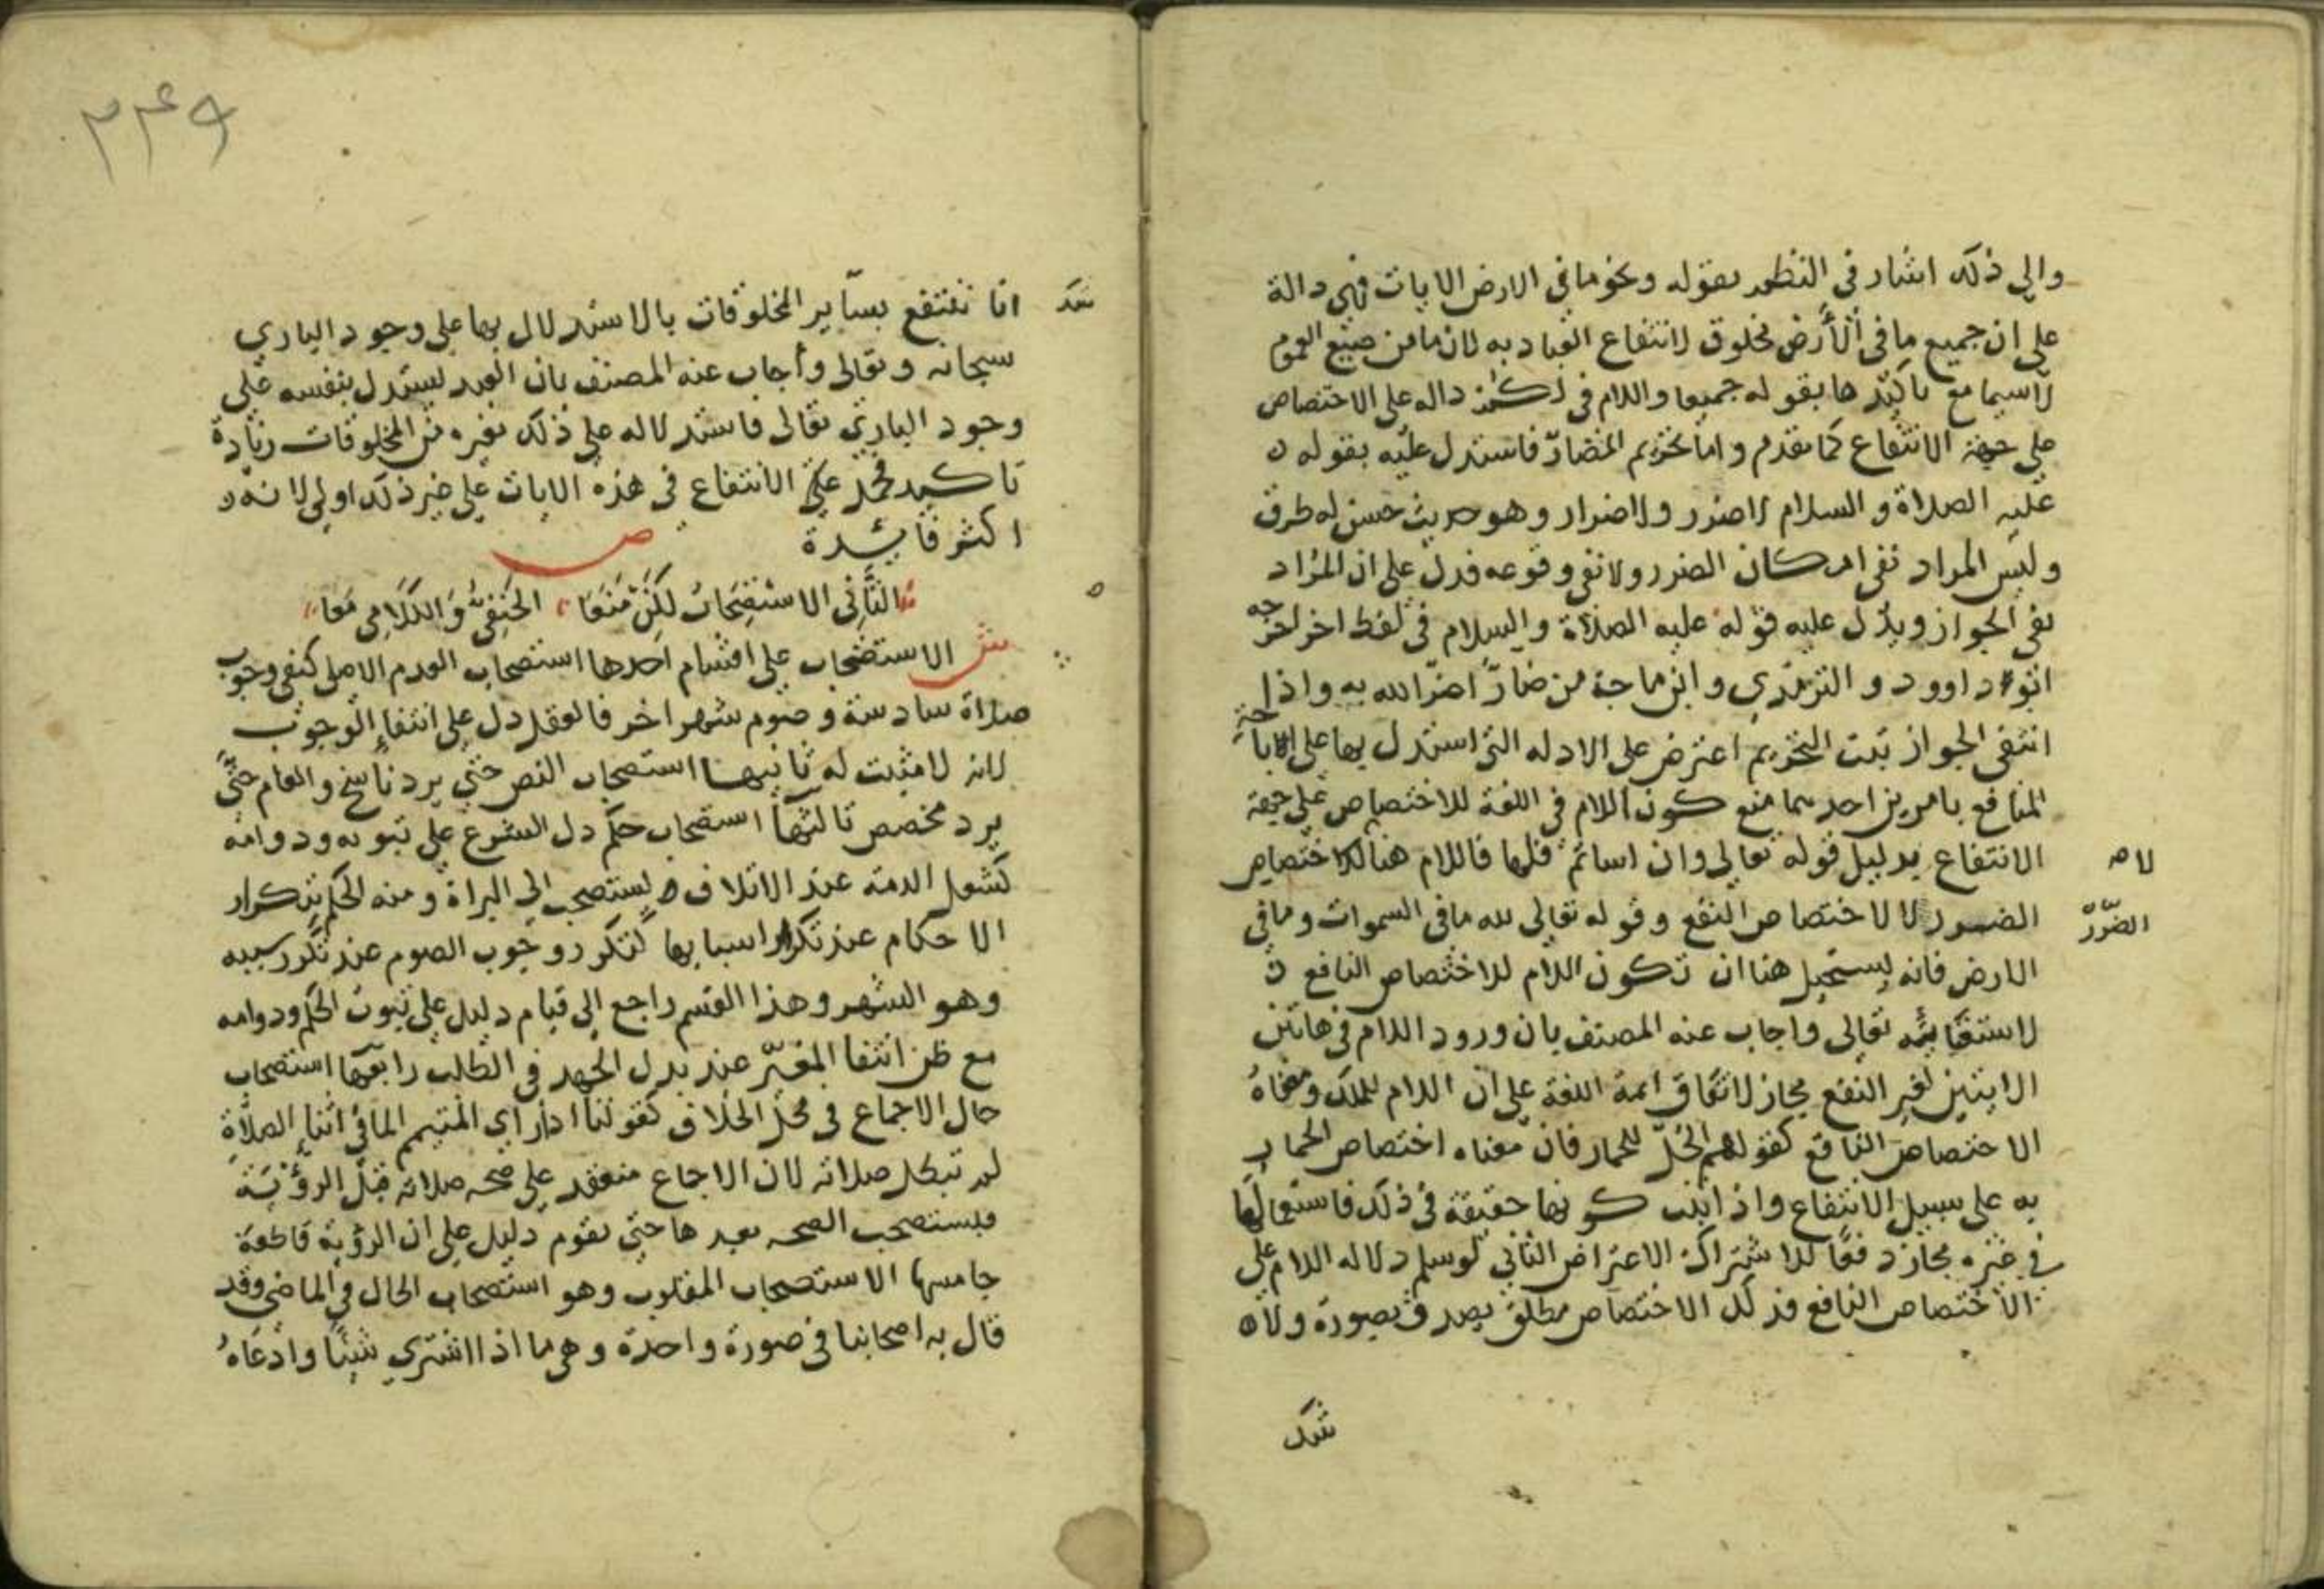 والى ذلك اشار في النظم بقوله ونحو ما في الارض الايات فهي دالة
على ان جميع ما في الأرض مخلوق لانتفاع العباد به لان ما من صيغ العموم
لاسيما مع تاكيدها بقوله جميعا واللام في لكم داله على الاختصاص
على جهة الانتفاع كما تقدم واما تحريم المضار فاستدل عليه بقوله
عليه الصلاة والسلام لا ضرر ولا ضرار وهو حديث حسن له طرق
وليس المراد نفي امكان الضرر ولا نفي وقوعه فدل على ان المراد
نفي الجواز ويدل عليه قوله عليه الصلاة والسلام في لفظ اخر اخرجه
ابو داوود والترمذي وابن ماجة من ضارّ اضرّ الله به واذا
انتفى الجواز ثبت التحريم اعترض على الادله التي استدل بها على اباحة
المنافع بامرين احدهما منع كون اللام في اللغة للاختصاص على جهة
الانتفاع بدليل قوله تعالى وان اساتم فلها فاللام هنا لاختصاص
لا
الضرر لا لاختصاص النفع وقوله تعالى لله ما في السموات وما في
الضّرر
الارض فانه يستحيل هنا ان تكون اللام للاختصاص النافع
لاستغنايه تعالى واجاب عنه المصنف بان ورود اللام في هاتين
الايتين لغير النفع مجاز لاتفاق ائمة اللغة على ان اللام للملك ومعناهُ
الاختصاص النافع كقولهم الجُلّ للحمار فان معناه اختصاص الحمار
به على سبيل الانتفاع واذا ثبت كونها حقيقة في ذلك فاستعمالها
في غيره مجاز دفعًا للاشتراك الاعتراض الثاني لو سلم دلاله اللام على
الاختصاص النافع فذلك الاختصاص مطلق يصدق بصورة ولان
شك
٢٤٩
انا ننتفع بساير المخلوقات بالاستدلال بها على وجود الباري
سبحانه وتعالى وأجاب عنه المصنف بان العبد يستدل بنفسه على
وجود الباري تعالى فاستدلاله على ذلك بغيره من المخلوقات زيادة
تاكيد فحمل الانتفاع في هذه الايات على غير ذلك اولى لانه
اكثر فايدة
ص
الثَّاني الاستصحابُ لكن منعا الحنفيُّ والكلامي معا
ش الاستصحاب على اقسام احدها استصحاب العدم الاصلي كنفي وجوب
صلاة سادسة وصوم شهر اخر فالعقل دل على انتفاء الوجوب
لانه لا مثبت له ثانيها استصحاب النص حتى يرد ناسخ والعام حتى
يرد مخصص ثالثها استصحاب حكم دل الشرع على ثبوته ودوامه
كشغل الذمة عند الاتلاف يستصحب الى البراة ومنه الحكم بتكرار
الاحكام عند تكرار اسبابها كتكرر وجوب الصوم عند تكرر سببه
وهو الشهر وهذا القسم راجع الى قيام دليل على ثبوت الحكم ودوامه
مع ظن انتفا المغيّر عند بذل الجهد في الطلب رابعها استصحاب
حال الاجماع في محل الخلاف كقولنا اذا راي المتيمم الما في اثناء الصلاة
لم تبطل صلاته لان الاجماع منعقد على صحه صلاته قبل الرؤيَة
فيستصحب الصحه بعدها حتى يقوم دليل على ان الرؤية قاطعة
خامسها الاستصحاب المقلوب وهو استصحاب الحال في الماضي وقد
قال به اصحابنا في صورة واحدة وهي ما اذا اشترى شيئًا وادعاهُ